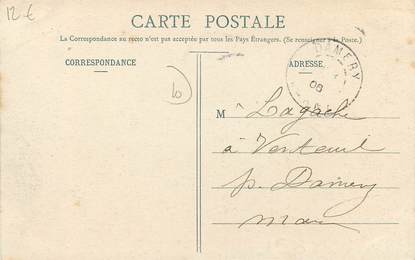 12 €
CARTE POSTALE
La Correspondance au recto n'est pas acceptée par tous les Pays Étrangers. (Se renseigner à la Poste.)
CORRESPONDANCE
ADRESSE
DAMERY
06
10
M Lagache
à Venteuil
p. Damery
Marne